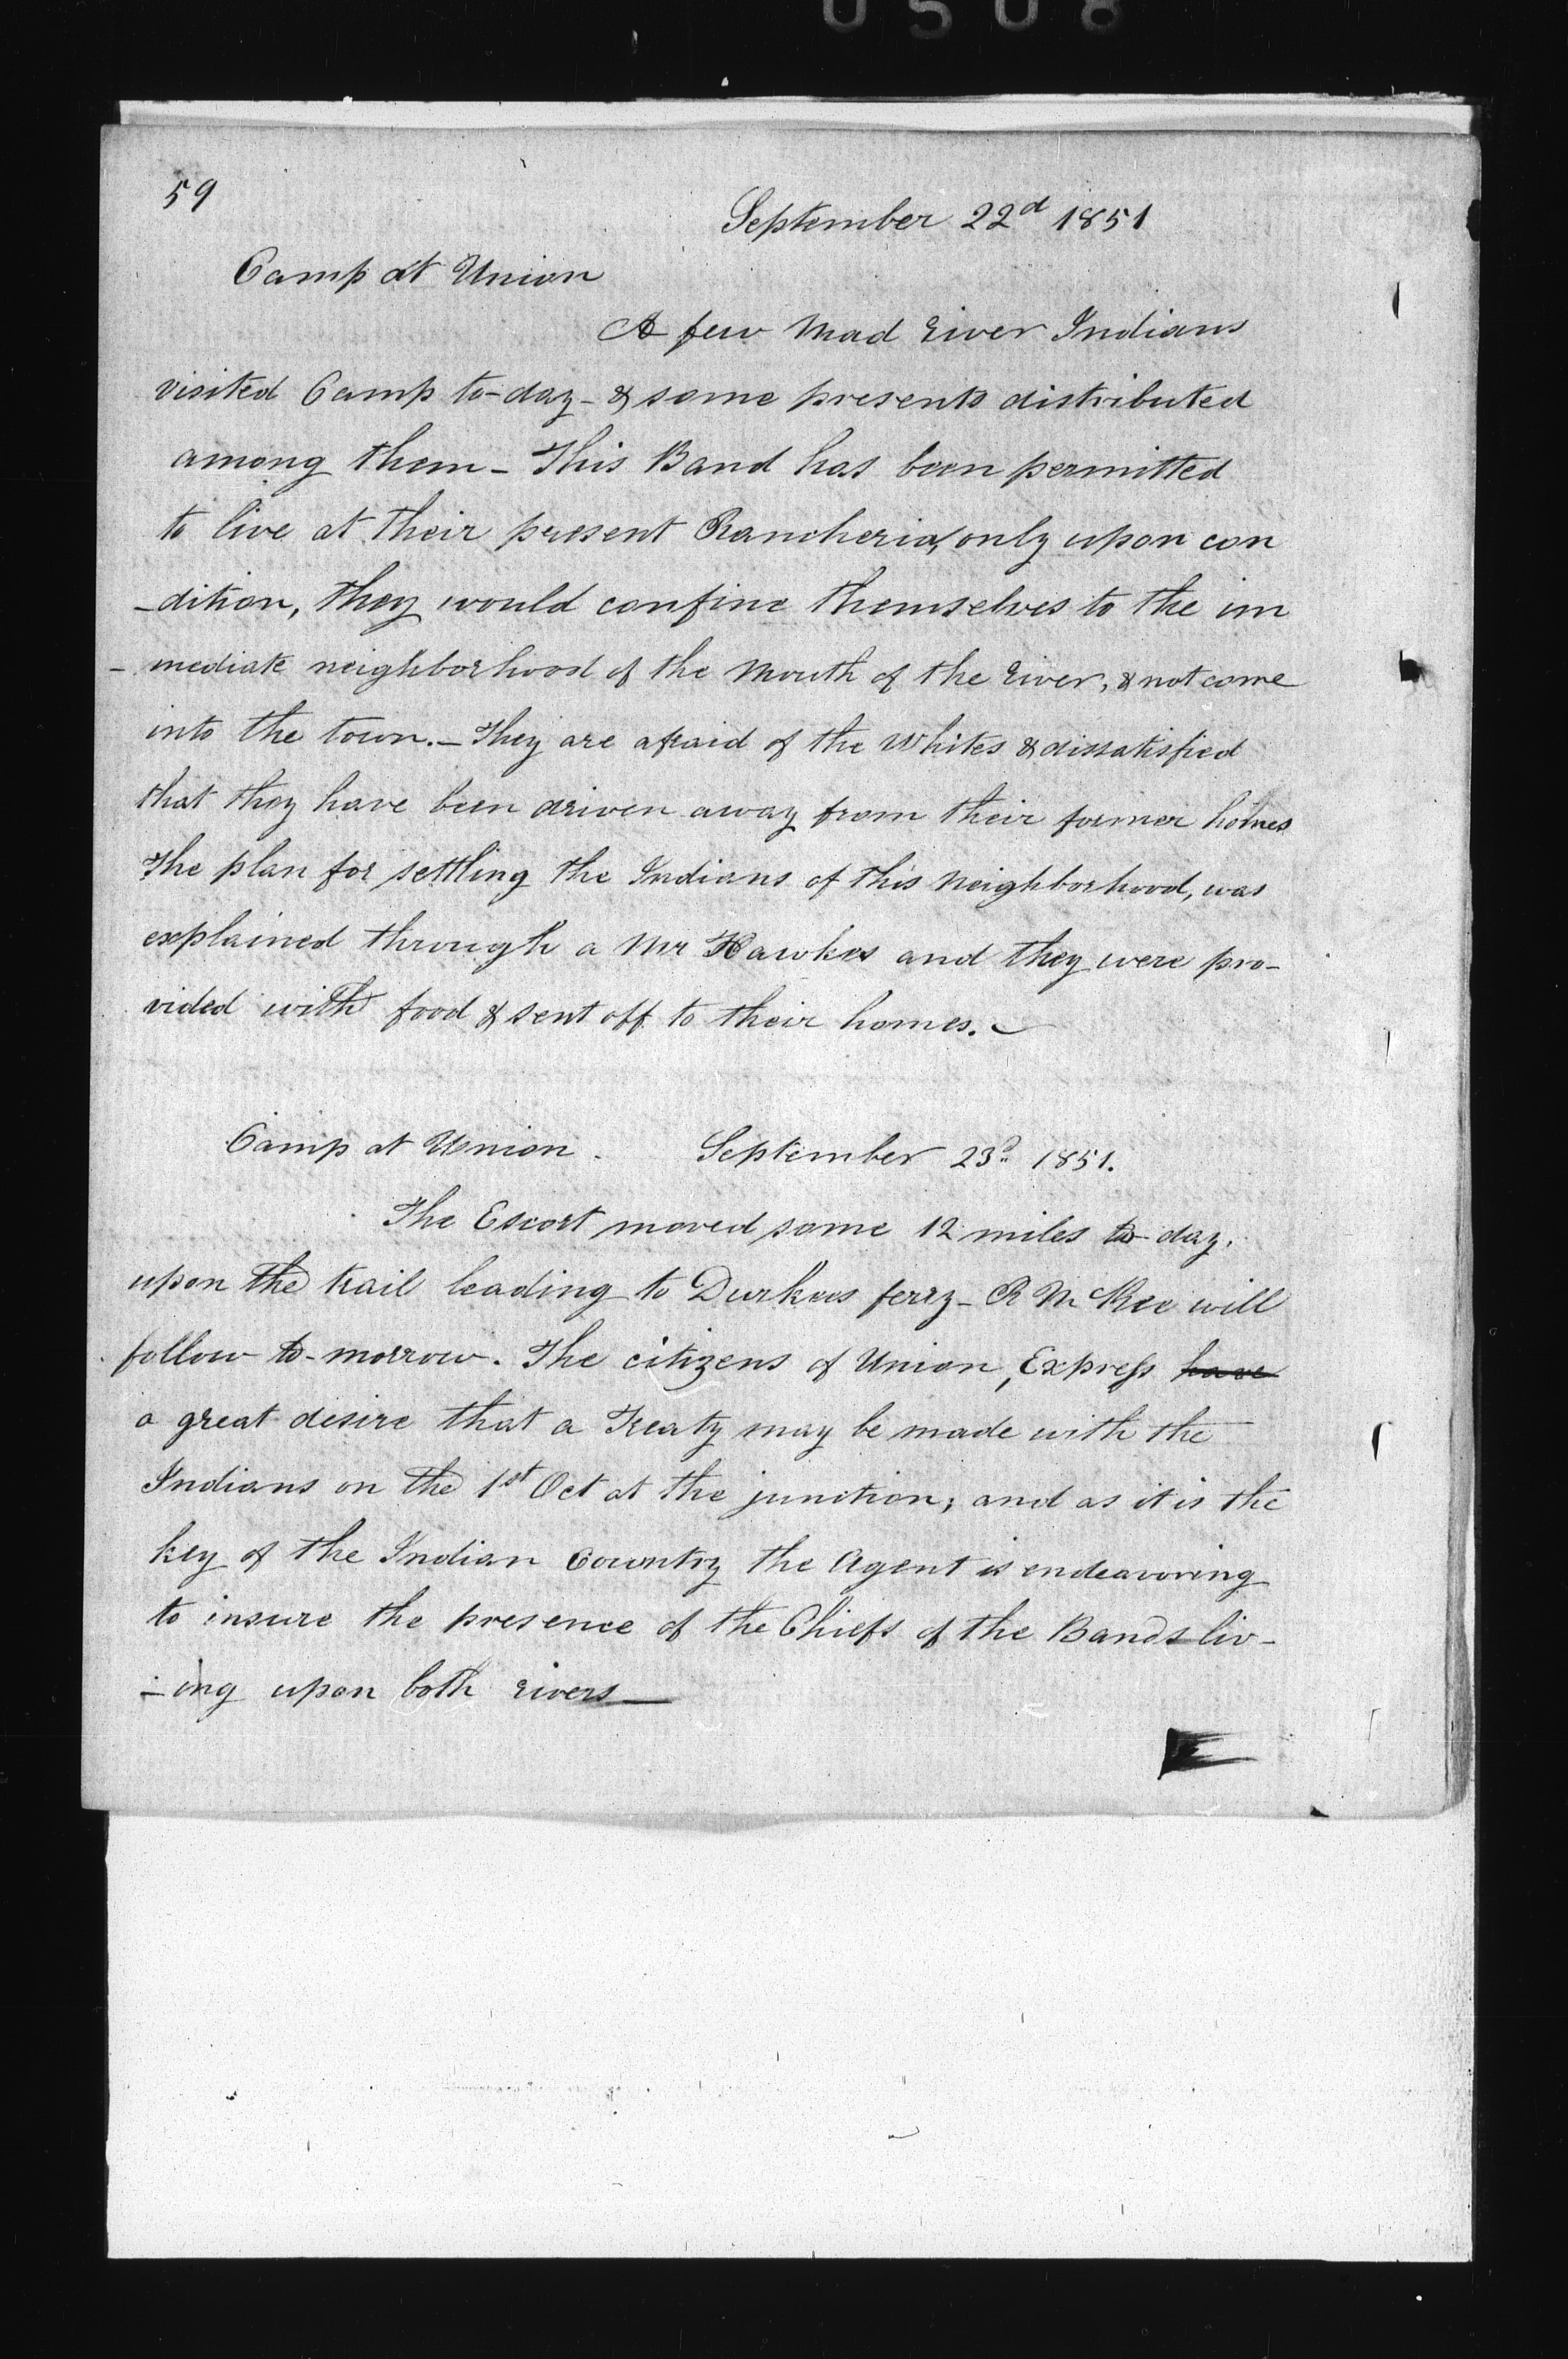 0508
59
September 22d 1851
Camp at Union
A few Mad River Indians
visited Camp to-day - & some presents distributed
among them - This Band has been permitted
to live at their present Rancheria, only upon con
-dition, they would confine themselves to the im
- mediate neighborhood of the Mouth of the River, & not come
into the town. - They are afraid of the Whites & dissatisfied
that they have been driven away from their former homes
The plan for settling the Indians of this Neighborhood, was
explained through a Mr Hawkes and they were pro-
vided with food & sent off to their homes. -
Camp at Union. September 23d 1851.
The Escort moved some 12 miles to-day.
upon the trail leading to Durkees ferry - R McKee will
follow to-morrow. The citizens of Union, Express have
a great desire that a Treaty may be made with the
Indians on the 1st Oct at the junction; and as it is the
key of the Indian Country the Agent is endeavoring
to insure the presence of the Chiefs of the Bands liv-
-ing upon both rivers -